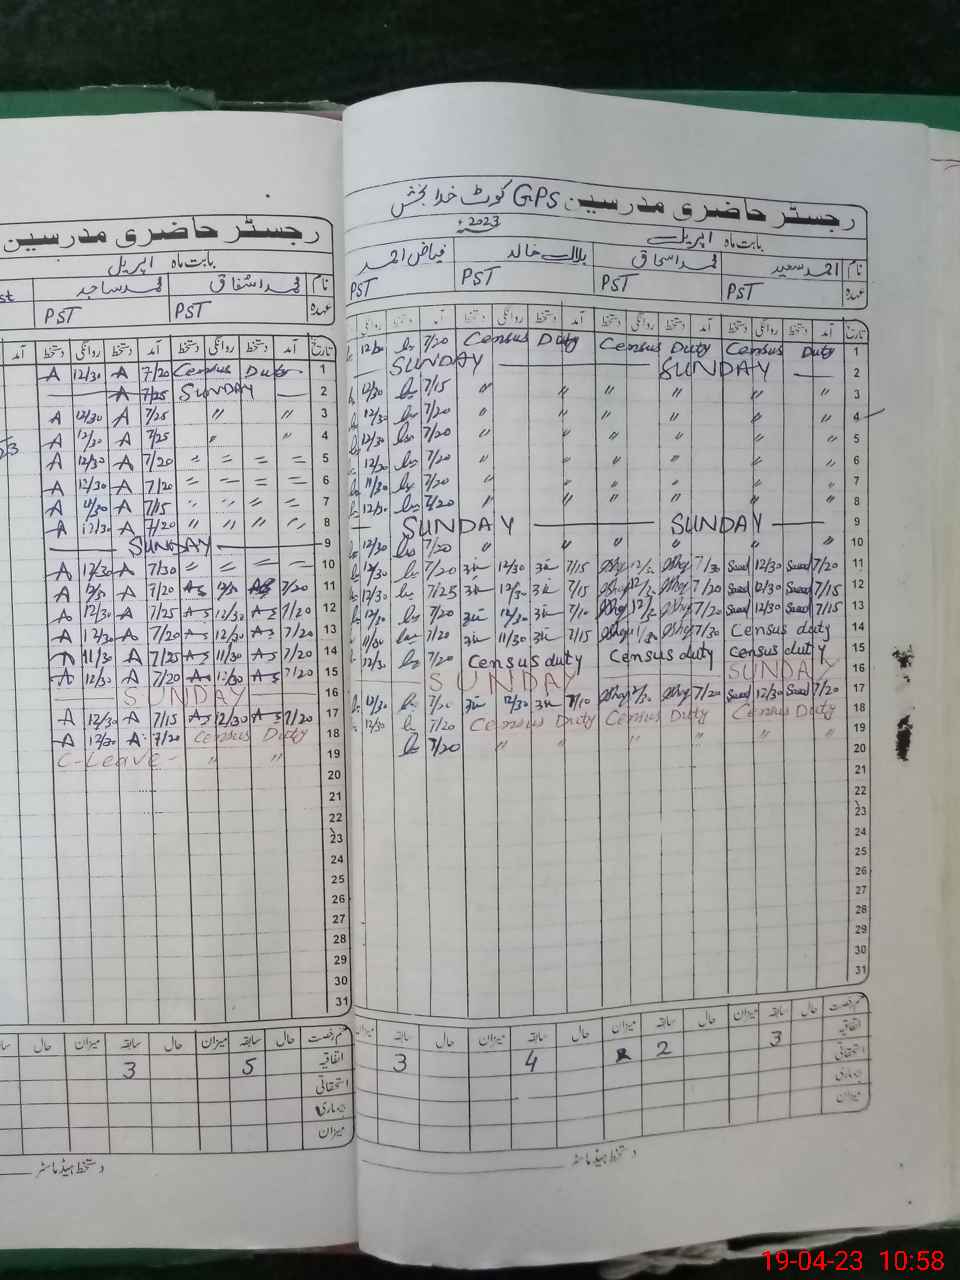 رجسٹر حاضری مدرسین GPS کوٹ خدا بخش
بابت ماہ اپریل 2023ء
نام احمد سعید محمد اسحاق بلال خالد فیاض احمد
عہدہ PST PST PST PST
تاریخ آمد دستخط روانگی دستخط آمد دستخط روانگی دستخط آمد دستخط روانگی دستخط آمد دستخط روانگی
12/30 7/20 Census Duty Census Duty Census Duty 1
SUNDAY SUNDAY 2
12/30 7/15 〃 〃 〃 〃 〃 〃 3
12/30 7/20 〃 〃 〃 〃 〃 〃 4
12/30 7/20 〃 〃 〃 〃 〃 〃 5
12/30 7/20 〃 〃 〃 〃 〃 〃 6
11/30 7/20 〃 〃 〃 〃 〃 〃 7
12/30 7/20 〃 〃 〃 〃 〃 〃 8
SUNDAY SUNDAY 9
12/30 7/20 〃 〃 〃 〃 〃 〃 10
12/30 7/20 12/30 7/15 7/30 Saed 12/30 Saed 7/20 11
12/30 7/25 12/30 7/15 7/20 Saed 12/30 Saed 7/15 12
12/30 7/20 12/30 7/10 7/20 Saed 12/30 Saed 7/15 13
11/30 7/20 11/30 7/15 7/30 Census duty 14
12/30 7/20 Census duty Census duty Census duty 15
SUNDAY SUNDAY 16
12/30 7/20 12/30 7/10 7/20 Saed 12/30 Saed 7/20 17
12/30 7/20 Census Duty Census Duty Census Duty 18
7/20 〃 〃 〃 〃 〃 〃 19
20
21
22
23
24
25
26
27
28
29
30
31
قسم رخصت حال سابقہ میزان حال سابقہ میزان حال سابقہ میزان حال سابقہ میزان
اتفاقیہ 3 2 4 3
استحقاقی
بیماری
میزان
دستخط ہیڈ ماسٹر
رجسٹر حاضری مدرسین
بابت ماہ اپریل
نام محمد اشفاق محمد ساجد
عہدہ PST PST
تاریخ آمد دستخط روانگی دستخط آمد دستخط روانگی دستخط آمد
A 12/30 A 7/20 Census Duty 1
A 7/25 SUNDAY 2
A 12/30 A 7/25 〃 〃 3
A 12/30 A 7/25 〃 〃 4
A 12/30 A 7/20 〃 〃 〃 〃 5
A 12/30 A 7/20 〃 〃 〃 〃 6
A 11/30 A 7/15 〃 〃 〃 〃 7
A 12/30 A 7/20 〃 〃 〃 〃 8
SUNDAY 9
A 12/30 A 7/30 〃 〃 〃 〃 10
A A 7/20 As As 7/20 11
A 12/30 A 7/25 As 12/30 As 7/20 12
A 12/30 A 7/20 As 12/30 As 7/20 13
A 11/30 A 7/25 As 11/30 As 7/20 14
A 12/30 A 7/20 As 12/30 As 7/20 15
SUNDAY 16
A 12/30 A 7/15 As 12/30 As 7/20 17
A 12/30 A 7/20 Census Duty 18
C-Leave- 〃 〃 19
20
21
22
23
24
25
26
27
28
29
30
31
قسم رخصت حال سابقہ میزان حال سابقہ میزان حال
اتفاقیہ 5 3
استحقاقی
بیماری
میزان
دستخط ہیڈ ماسٹر
19-04-23 10:58